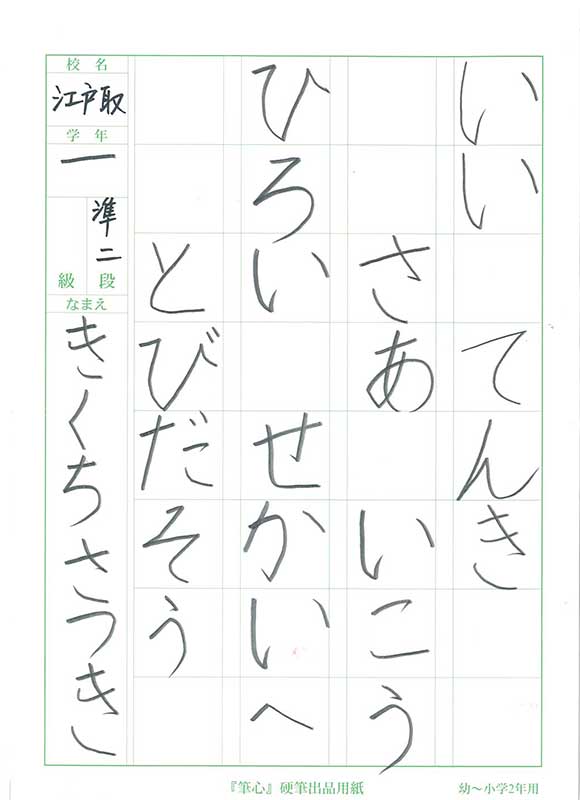 いい てんき
さあ いこう
ひろい せかいへ
とびだそう
校名
江戸取
学年
一
準二
段
級
なまえ
きくちさつき
『筆心』硬筆出品用紙
幼〜小学2年用